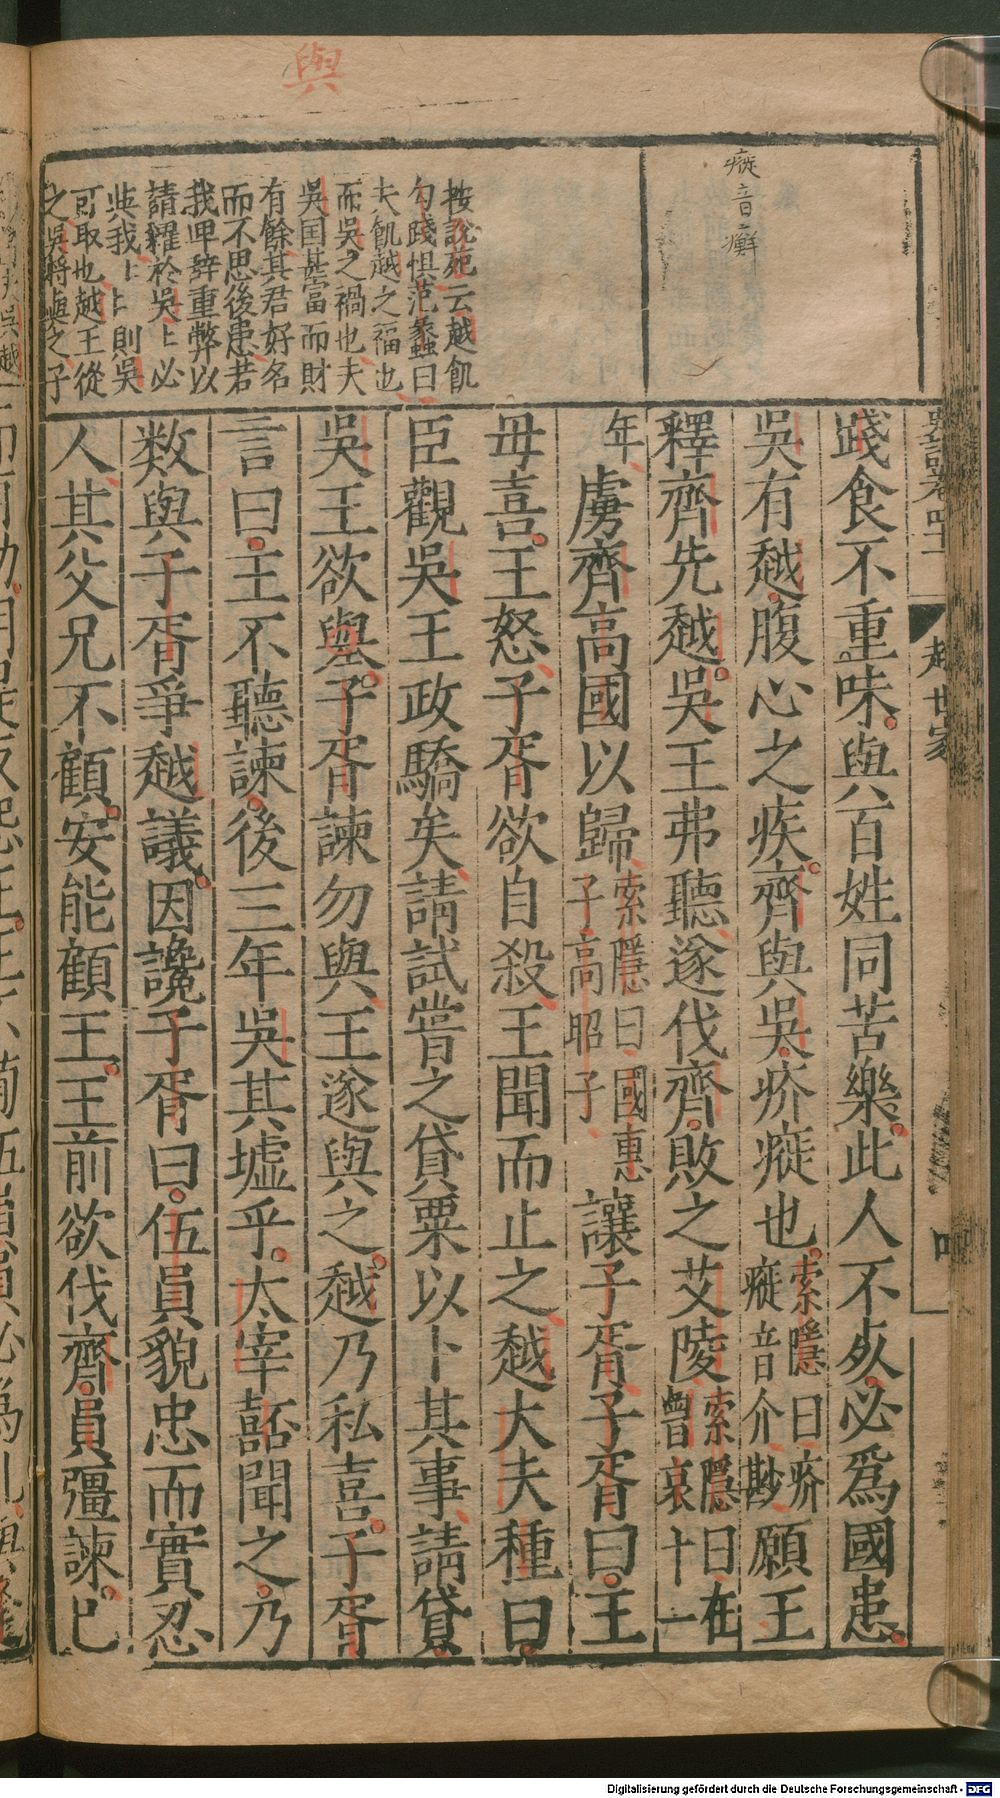 與
瘲音癬
按說苑云越飢
勾踐懼范蠡曰
夫飢越之福也
而吳之禍也夫
吳国甚富而財
有餘其君好名
而不思後患若
我卑辞重弊以
請糴於吳〻必
與我〻〻則吳
可取也越王從
之吳將與之子
越世家
踐食不重味與百姓同苦樂此人不死必爲國患
吳有越腹心之疾齊與吳疥瘲也
索隱曰疥
瘲音介尠
願王
釋齊先越吳王弗聽遂伐齊敗之艾陵
索隱曰在
魯哀十一
年
虜齊高國以歸
索隱曰國惠
子高昭子
讓子胥子胥曰王
毋喜王怒子胥欲自殺王聞而止之越大夫種曰
臣觀吳王政驕矣請試嘗之貸粟以卜其事請貸
吳王欲與子胥諫勿與王遂與之越乃私喜子胥
言曰王不聽諫後三年吳其墟乎太宰嚭聞之乃
數與子胥爭越議因讒子胥曰伍員貌忠而實忍
人其父兄不顧安能顧王王前欲伐齊員彊諫已
Digitalisierung gefördert durch die Deutsche Forschungsgemeinschaft - DFG